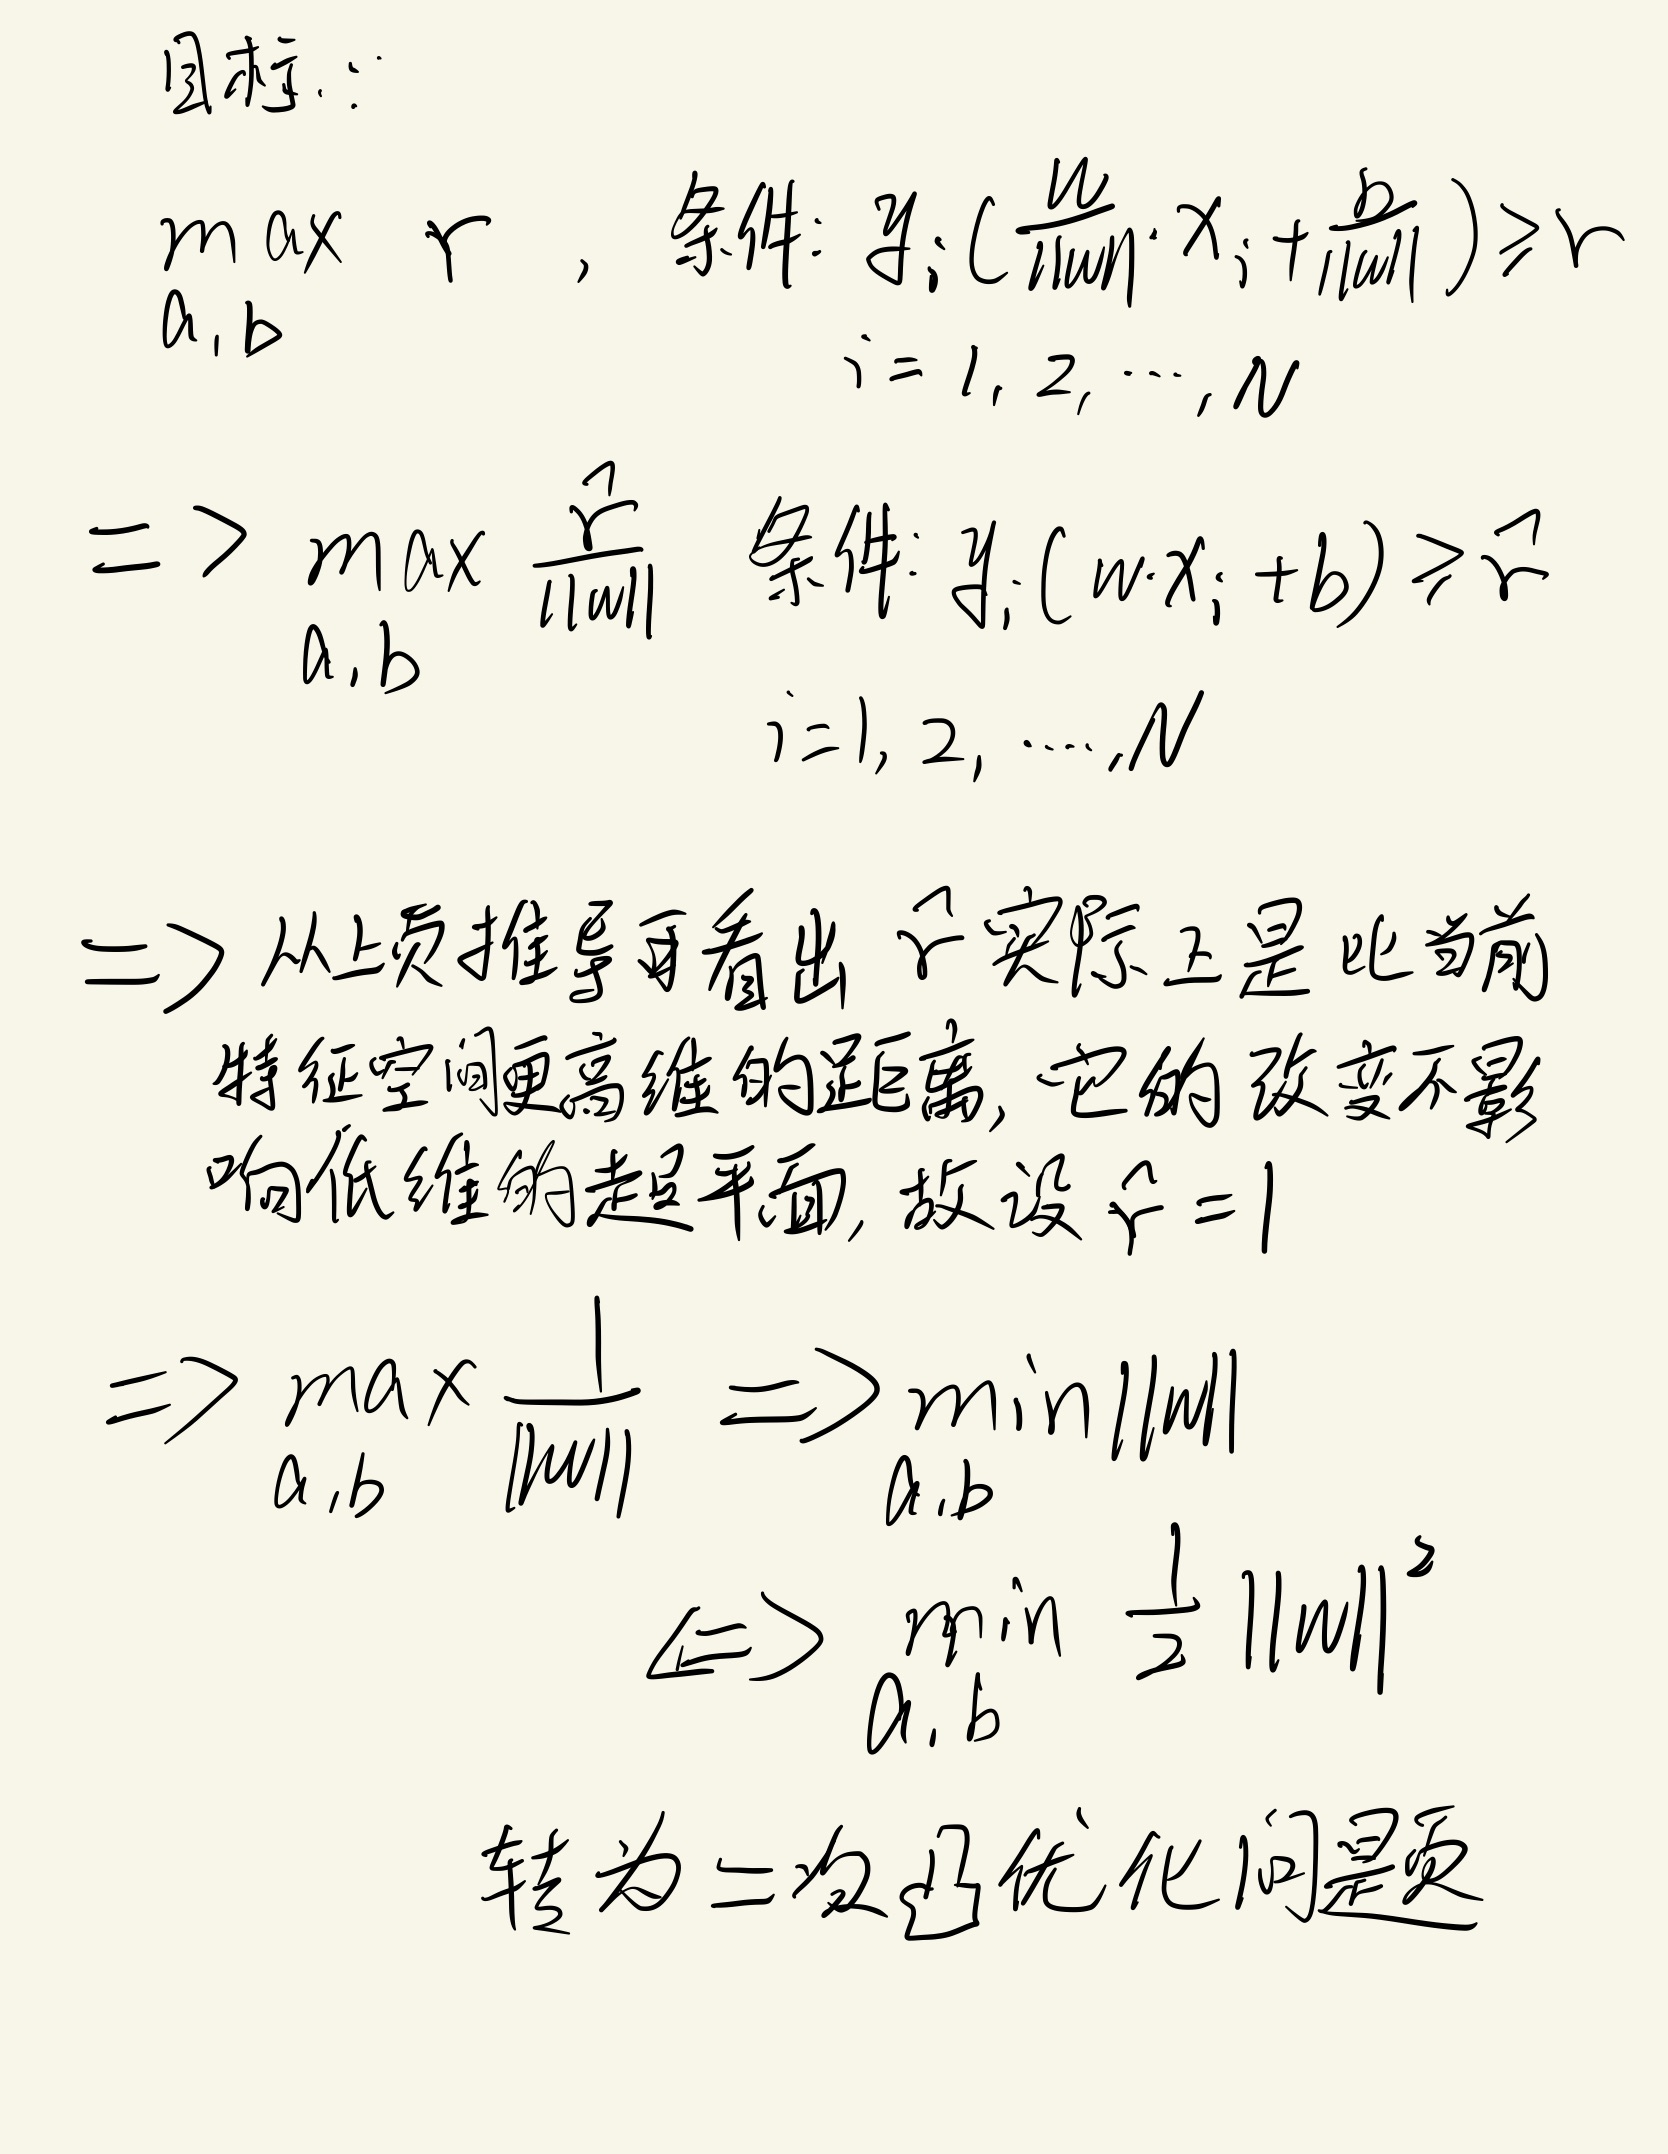 目标:
max r , 条件: y_i(w/||w||·x_i+b/||w||)≥r
a,b
i=1,2,…,N
=> max r̂/||w|| 条件: y_i(w·x_i+b)≥r̂
a,b
i=1,2,…,N
=> 从上页推导可看出 r̂ 实际上是比当前
特征空间更高维的距离,它的改变不影
响低维的超平面,故设 r̂=1
=> max 1/||w|| => min||w||
a,b a,b
<=> min 1/2 ||w||²
a,b
转为二次凸优化问题